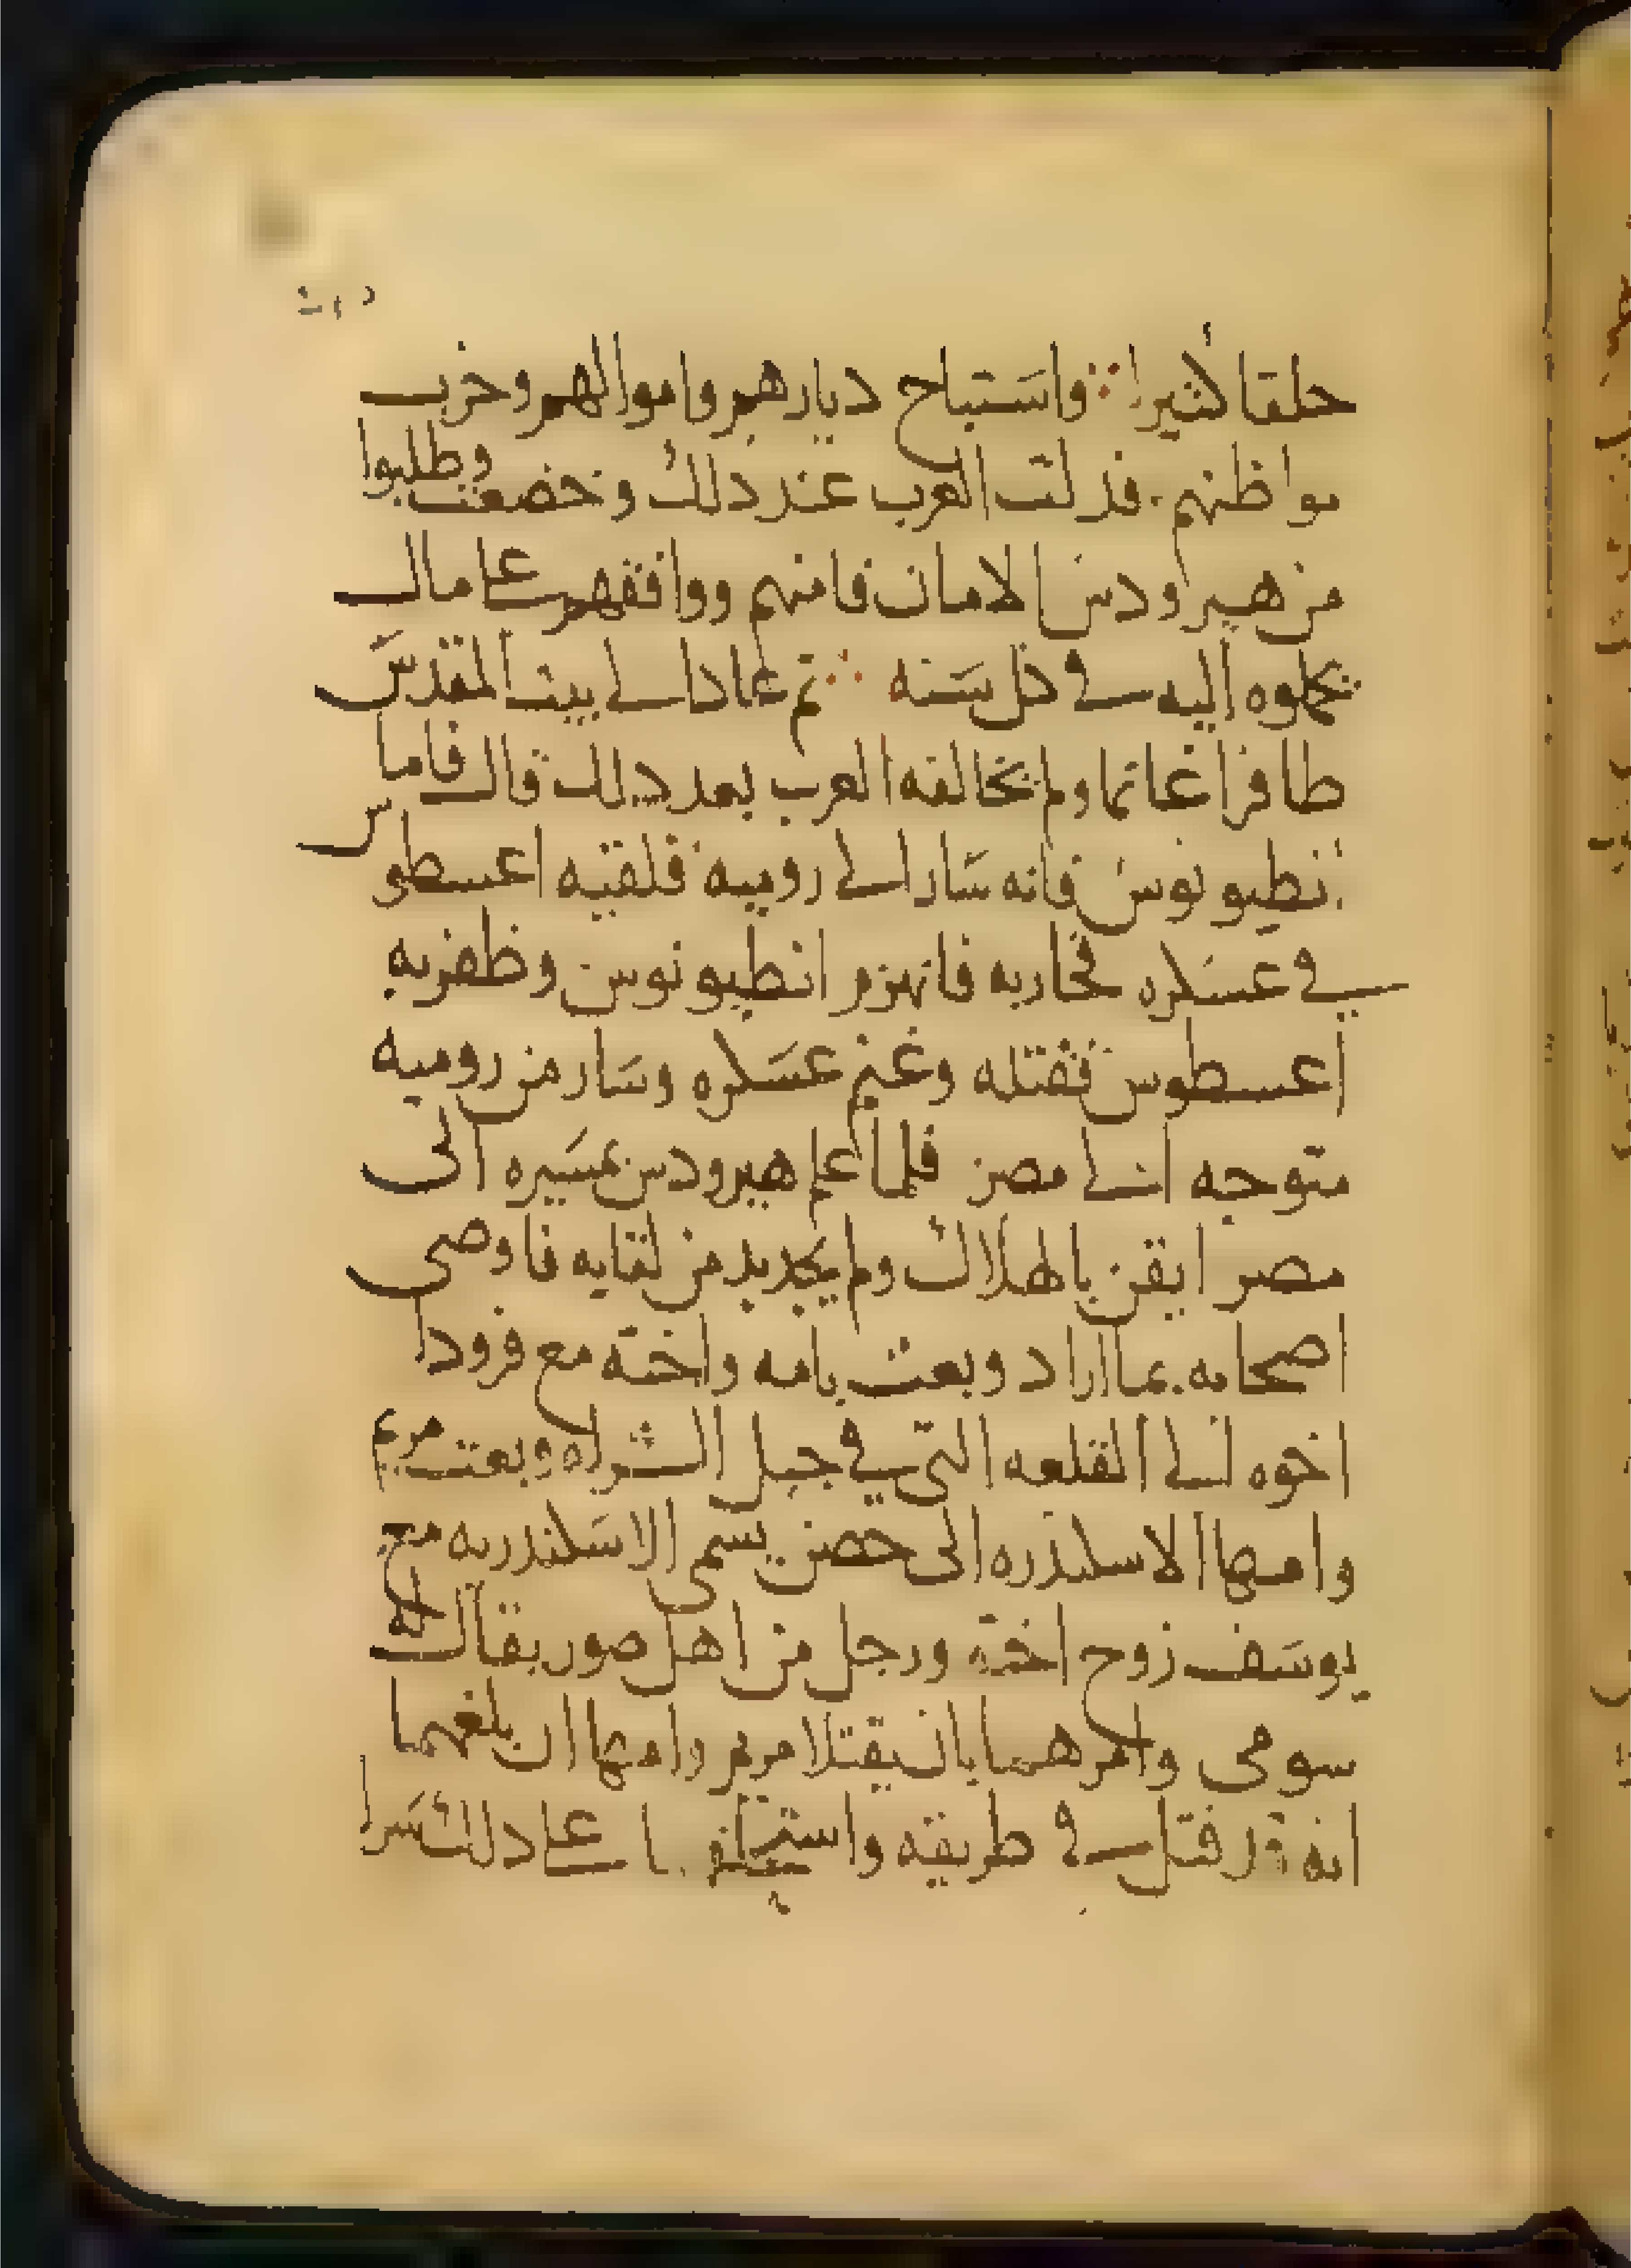 خلقا كثيرا واستباح ديارهم واموالهم وخرب
مواطنهم. فذلت العرب عند ذلك وخضعت وطلبوا
من هيرودس الامان فامنهم ووافقهم على مال
يحملوه اليه في كل سنه ثم عاد الى بيت المقدس
ظافرا غانما ولم تخالفه العرب بعد ذلك قال فاما
انطيونوس فانه سار الى روميه فلقيه اغسطوس
في عسكره فحاربه فانهزم انطيونوس وظفر به
اغسطوس فقتله وغنم عسكره وسار من روميه
متوجه الى مصر فلما علم هيرودس بمسيره الى
مصر ايقن بالهلاك ولم يجد بد من لقايه فاوصى
اصحابه بما اراد وبعث بامه واخته مع فرودا
اخوه الى القلعه التي في جبل الشراه وبعث مريم
وامها الاسكندره الى حصن يسمى الاسكندريه مع
يوسف زوج اخته ورجل من اهل صور يقال له
سومى وامرهما بان يقتلا مريم وامها ان بلغهما
انه قد قتل في طريقه على ذلك سرا